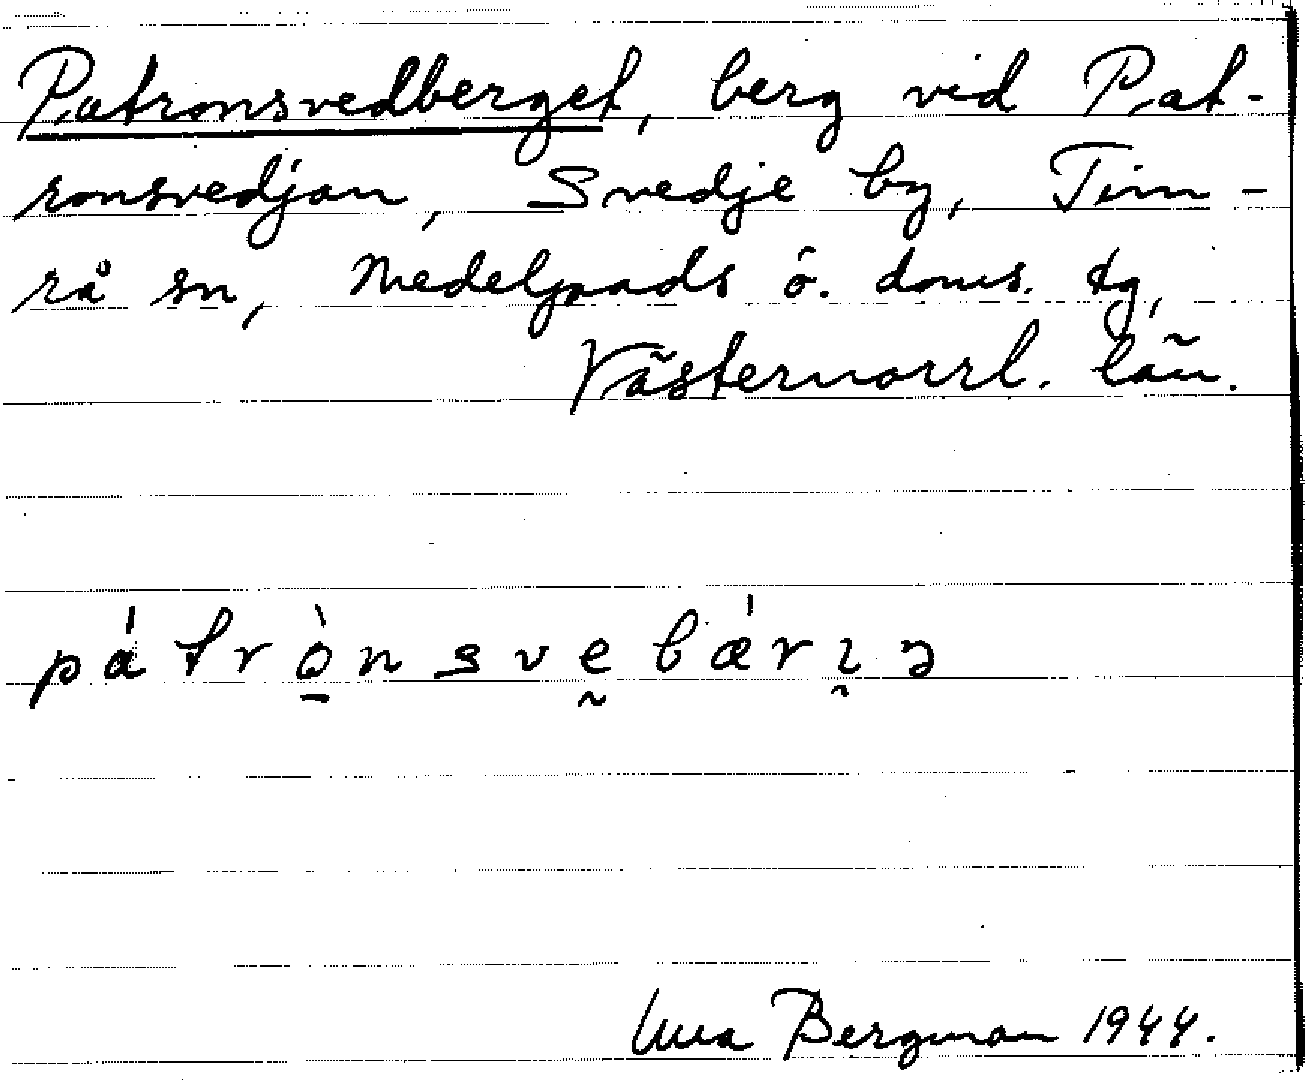 Patronsvedberget, berg vid Pat-
ronsvedjan, Svedje by, Tim-
rå sn, Medelpads ö. doms. tg,
Västernorrl. län.
pátrò̱nsvḛbǽrı̰ɔ
Bergman 1944.